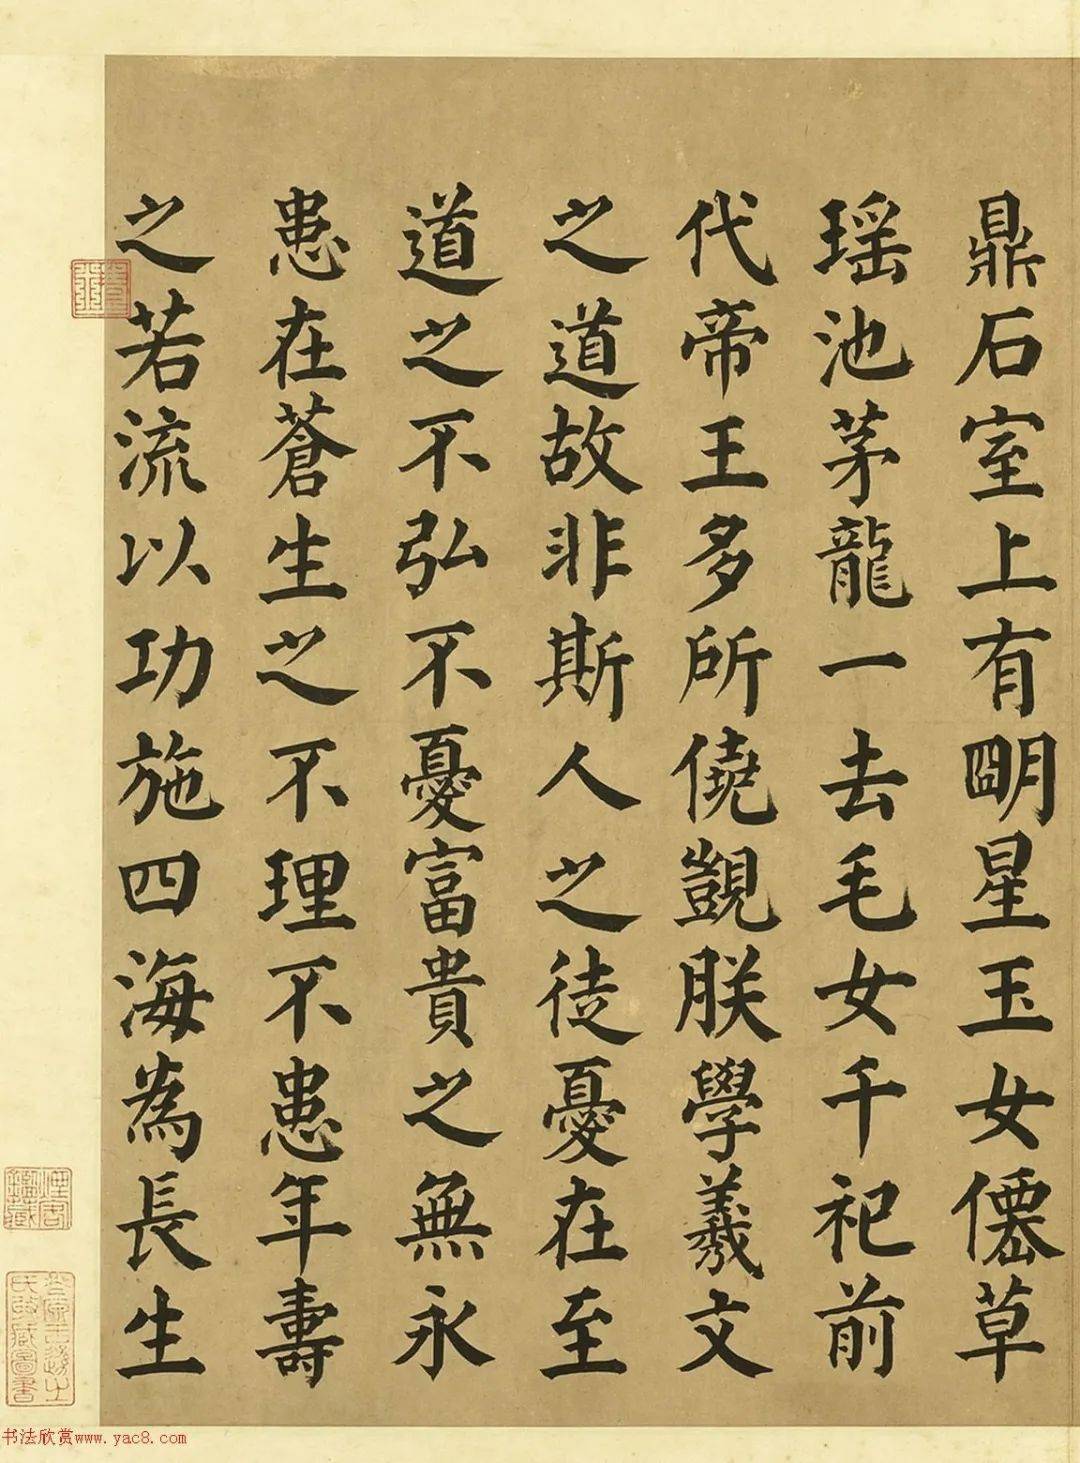 鼎石室上有朙星玉女僊草
瑶池茅龍一去毛女千祀前
代帝王多所僥覬朕學羲文
之道故非斯人之徒憂在至
道之不弘不憂富貴之無永
患在蒼生之不理不患年壽
之若流以功施四海為長生
书法欣赏www.yac8.com